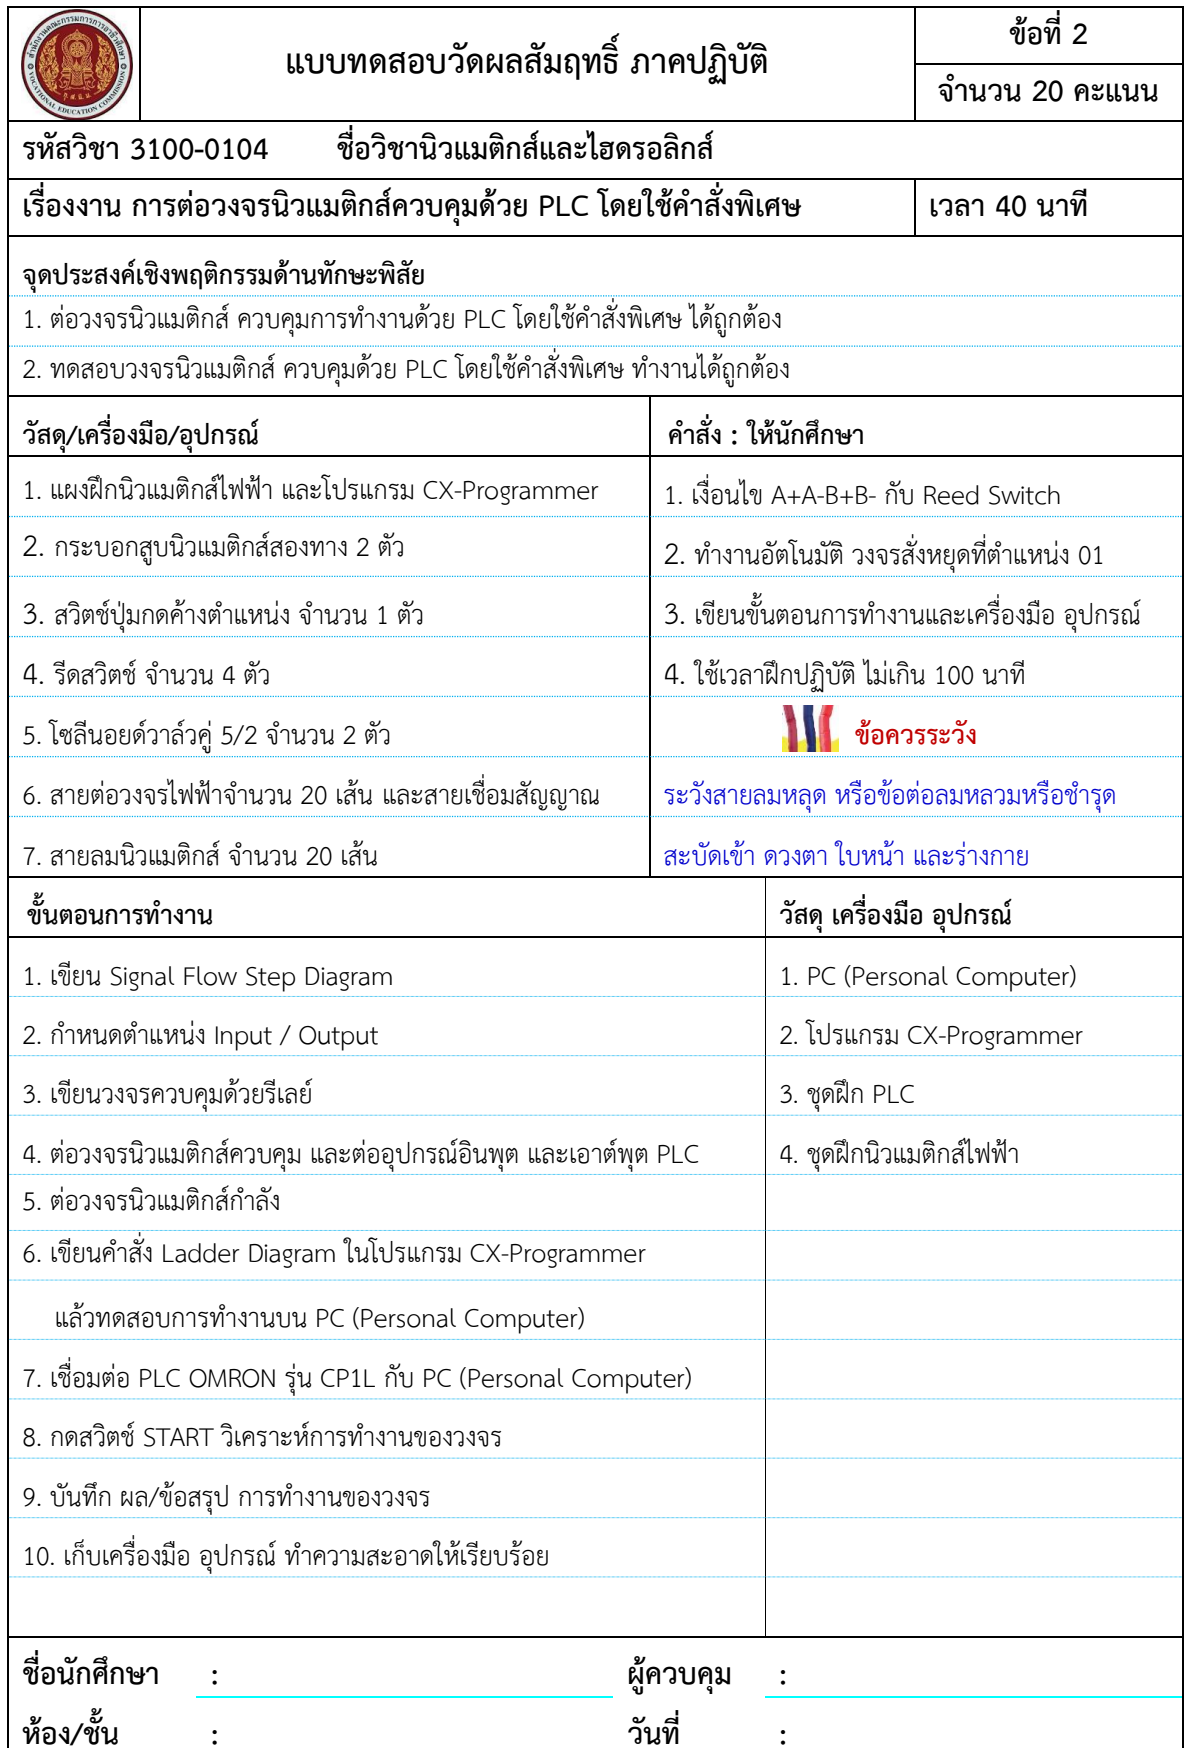 แบบทดสอบวัดผลสัมฤทธิ์ ภาคปฏิบัติ
ข้อที่ 2
จำนวน 20 คะแนน
รหัสวิชา 3100-0104 ชื่อวิชานิวแมติกส์และไฮดรอลิกส์
เรื่องงาน การต่อวงจรนิวแมติกส์ควบคุมด้วย PLC โดยใช้คำสั่งพิเศษ
เวลา 40 นาที
จุดประสงค์เชิงพฤติกรรมด้านทักษะพิสัย
1. ต่อวงจรนิวแมติกส์ ควบคุมการทำงานด้วย PLC โดยใช้คำสั่งพิเศษ ได้ถูกต้อง
2. ทดสอบวงจรนิวแมติกส์ ควบคุมด้วย PLC โดยใช้คำสั่งพิเศษ ทำงานได้ถูกต้อง
วัสดุ/เครื่องมือ/อุปกรณ์
1. แผงฝึกนิวแมติกส์ไฟฟ้า และโปรแกรม CX-Programmer
2. กระบอกสูบนิวแมติกส์สองทาง 2 ตัว
3. สวิตช์ปุ่มกดค้างตำแหน่ง จำนวน 1 ตัว
4. รีดสวิตช์ จำนวน 4 ตัว
5. โซลีนอยด์วาล์วคู่ 5/2 จำนวน 2 ตัว
6. สายต่อวงจรไฟฟ้าจำนวน 20 เส้น และสายเชื่อมสัญญาณ
7. สายลมนิวแมติกส์ จำนวน 20 เส้น
คำสั่ง : ให้นักศึกษา
1. เงื่อนไข A+A-B+B- กับ Reed Switch
2. ทำงานอัตโนมัติ วงจรสั่งหยุดที่ตำแหน่ง 01
3. เขียนขั้นตอนการทำงานและเครื่องมือ อุปกรณ์
4. ใช้เวลาฝึกปฏิบัติ ไม่เกิน 100 นาที
ข้อควรระวัง
ระวังสายลมหลุด หรือข้อต่อลมหลวมหรือชำรุด
สะบัดเข้า ดวงตา ใบหน้า และร่างกาย
ขั้นตอนการทำงาน
1. เขียน Signal Flow Step Diagram
2. กำหนดตำแหน่ง Input / Output
3. เขียนวงจรควบคุมด้วยรีเลย์
4. ต่อวงจรนิวแมติกส์ควบคุม และต่ออุปกรณ์อินพุต และเอาต์พุต PLC
5. ต่อวงจรนิวแมติกส์กำลัง
6. เขียนคำสั่ง Ladder Diagram ในโปรแกรม CX-Programmer
แล้วทดสอบการทำงานบน PC (Personal Computer)
7. เชื่อมต่อ PLC OMRON รุ่น CP1L กับ PC (Personal Computer)
8. กดสวิตช์ START วิเคราะห์การทำงานของวงจร
9. บันทึก ผล/ข้อสรุป การทำงานของวงจร
10. เก็บเครื่องมือ อุปกรณ์ ทำความสะอาดให้เรียบร้อย
วัสดุ เครื่องมือ อุปกรณ์
1. PC (Personal Computer)
2. โปรแกรม CX-Programmer
3. ชุดฝึก PLC
4. ชุดฝึกนิวแมติกส์ไฟฟ้า
ชื่อนักศึกษา :
ผู้ควบคุม :
ห้อง/ชั้น :
วันที่ :